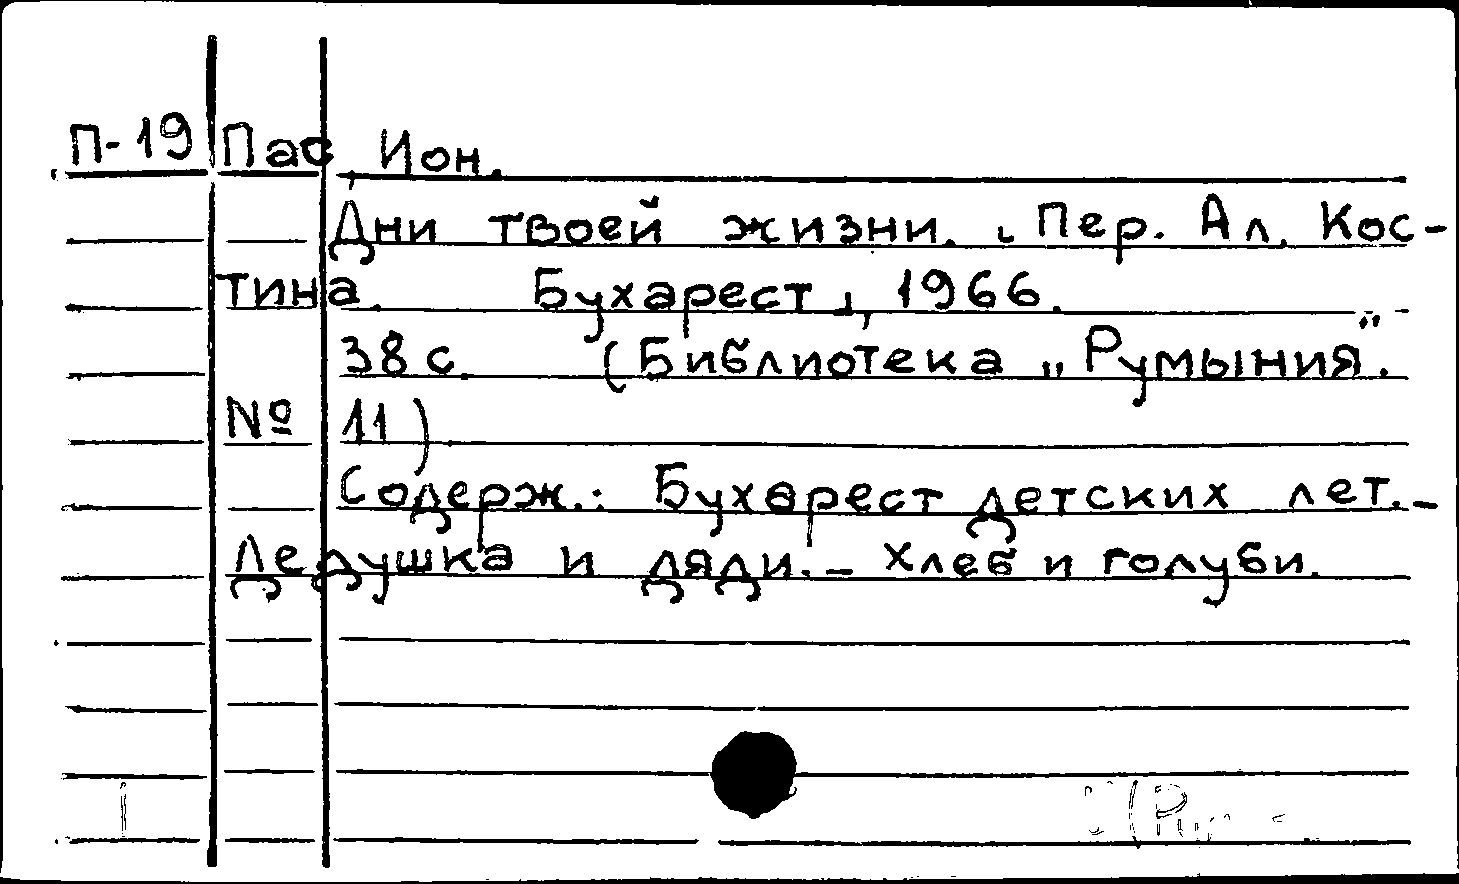 П-19 Пас, Ион.
Дни твоей жизни. Пер. Ал. Кос-
тина. Бухарест, 1966.
38 с. (Библиотека „Румыния".
№ 11)
Содерж.: Бухарест детских лет. –
Дедушка и дяди. – Хлеб и голуби.